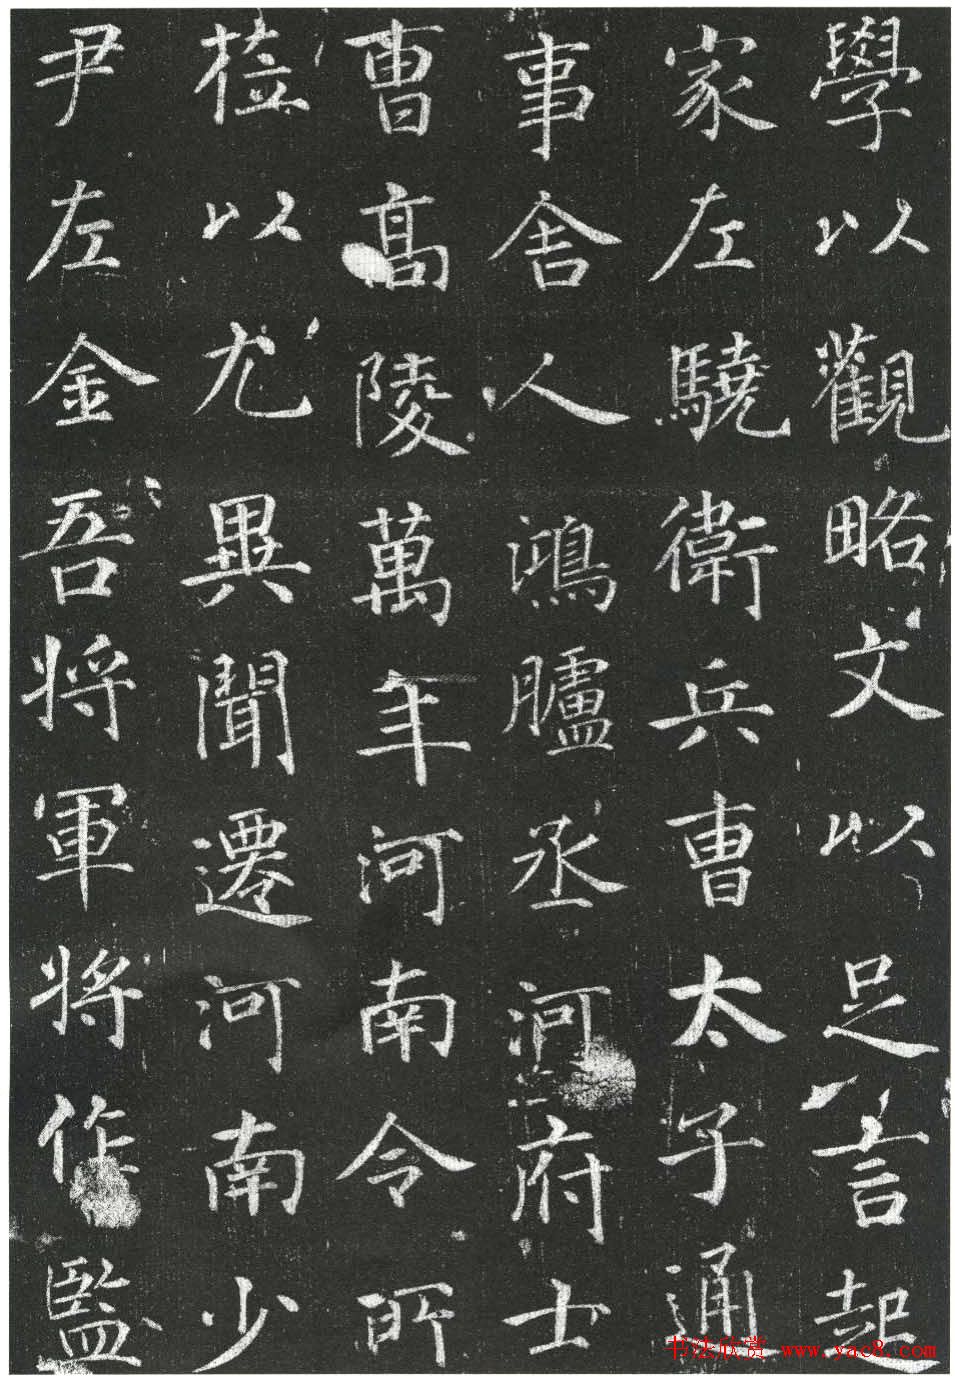 學以觀略文以足言起
家左驍衛兵曹太子通
事舍人鴻臚丞河府士
曹高陵萬年河南令所
莅以尤異聞遷河南少
尹左金吾将軍将作監
书法欣赏 www.yac8.com